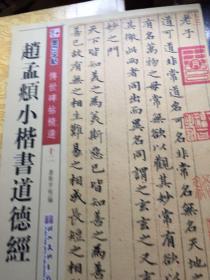 老子
道可道非常道名可名非常名無名天
有名萬物之母常無欲以觀其妙常有欲以
其徼此兩者同出而異名同謂之玄
妙之門
天下皆知美之爲美斯惡已皆知善之爲善
已故有無之相生難易之相成長短之相
傳世碑帖精選
趙孟頫小楷書道德經